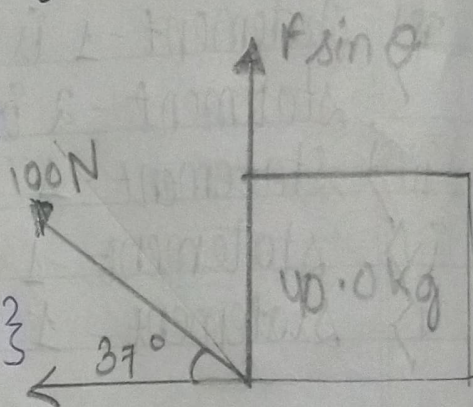 F sin θ
100N
40.0kg
37°